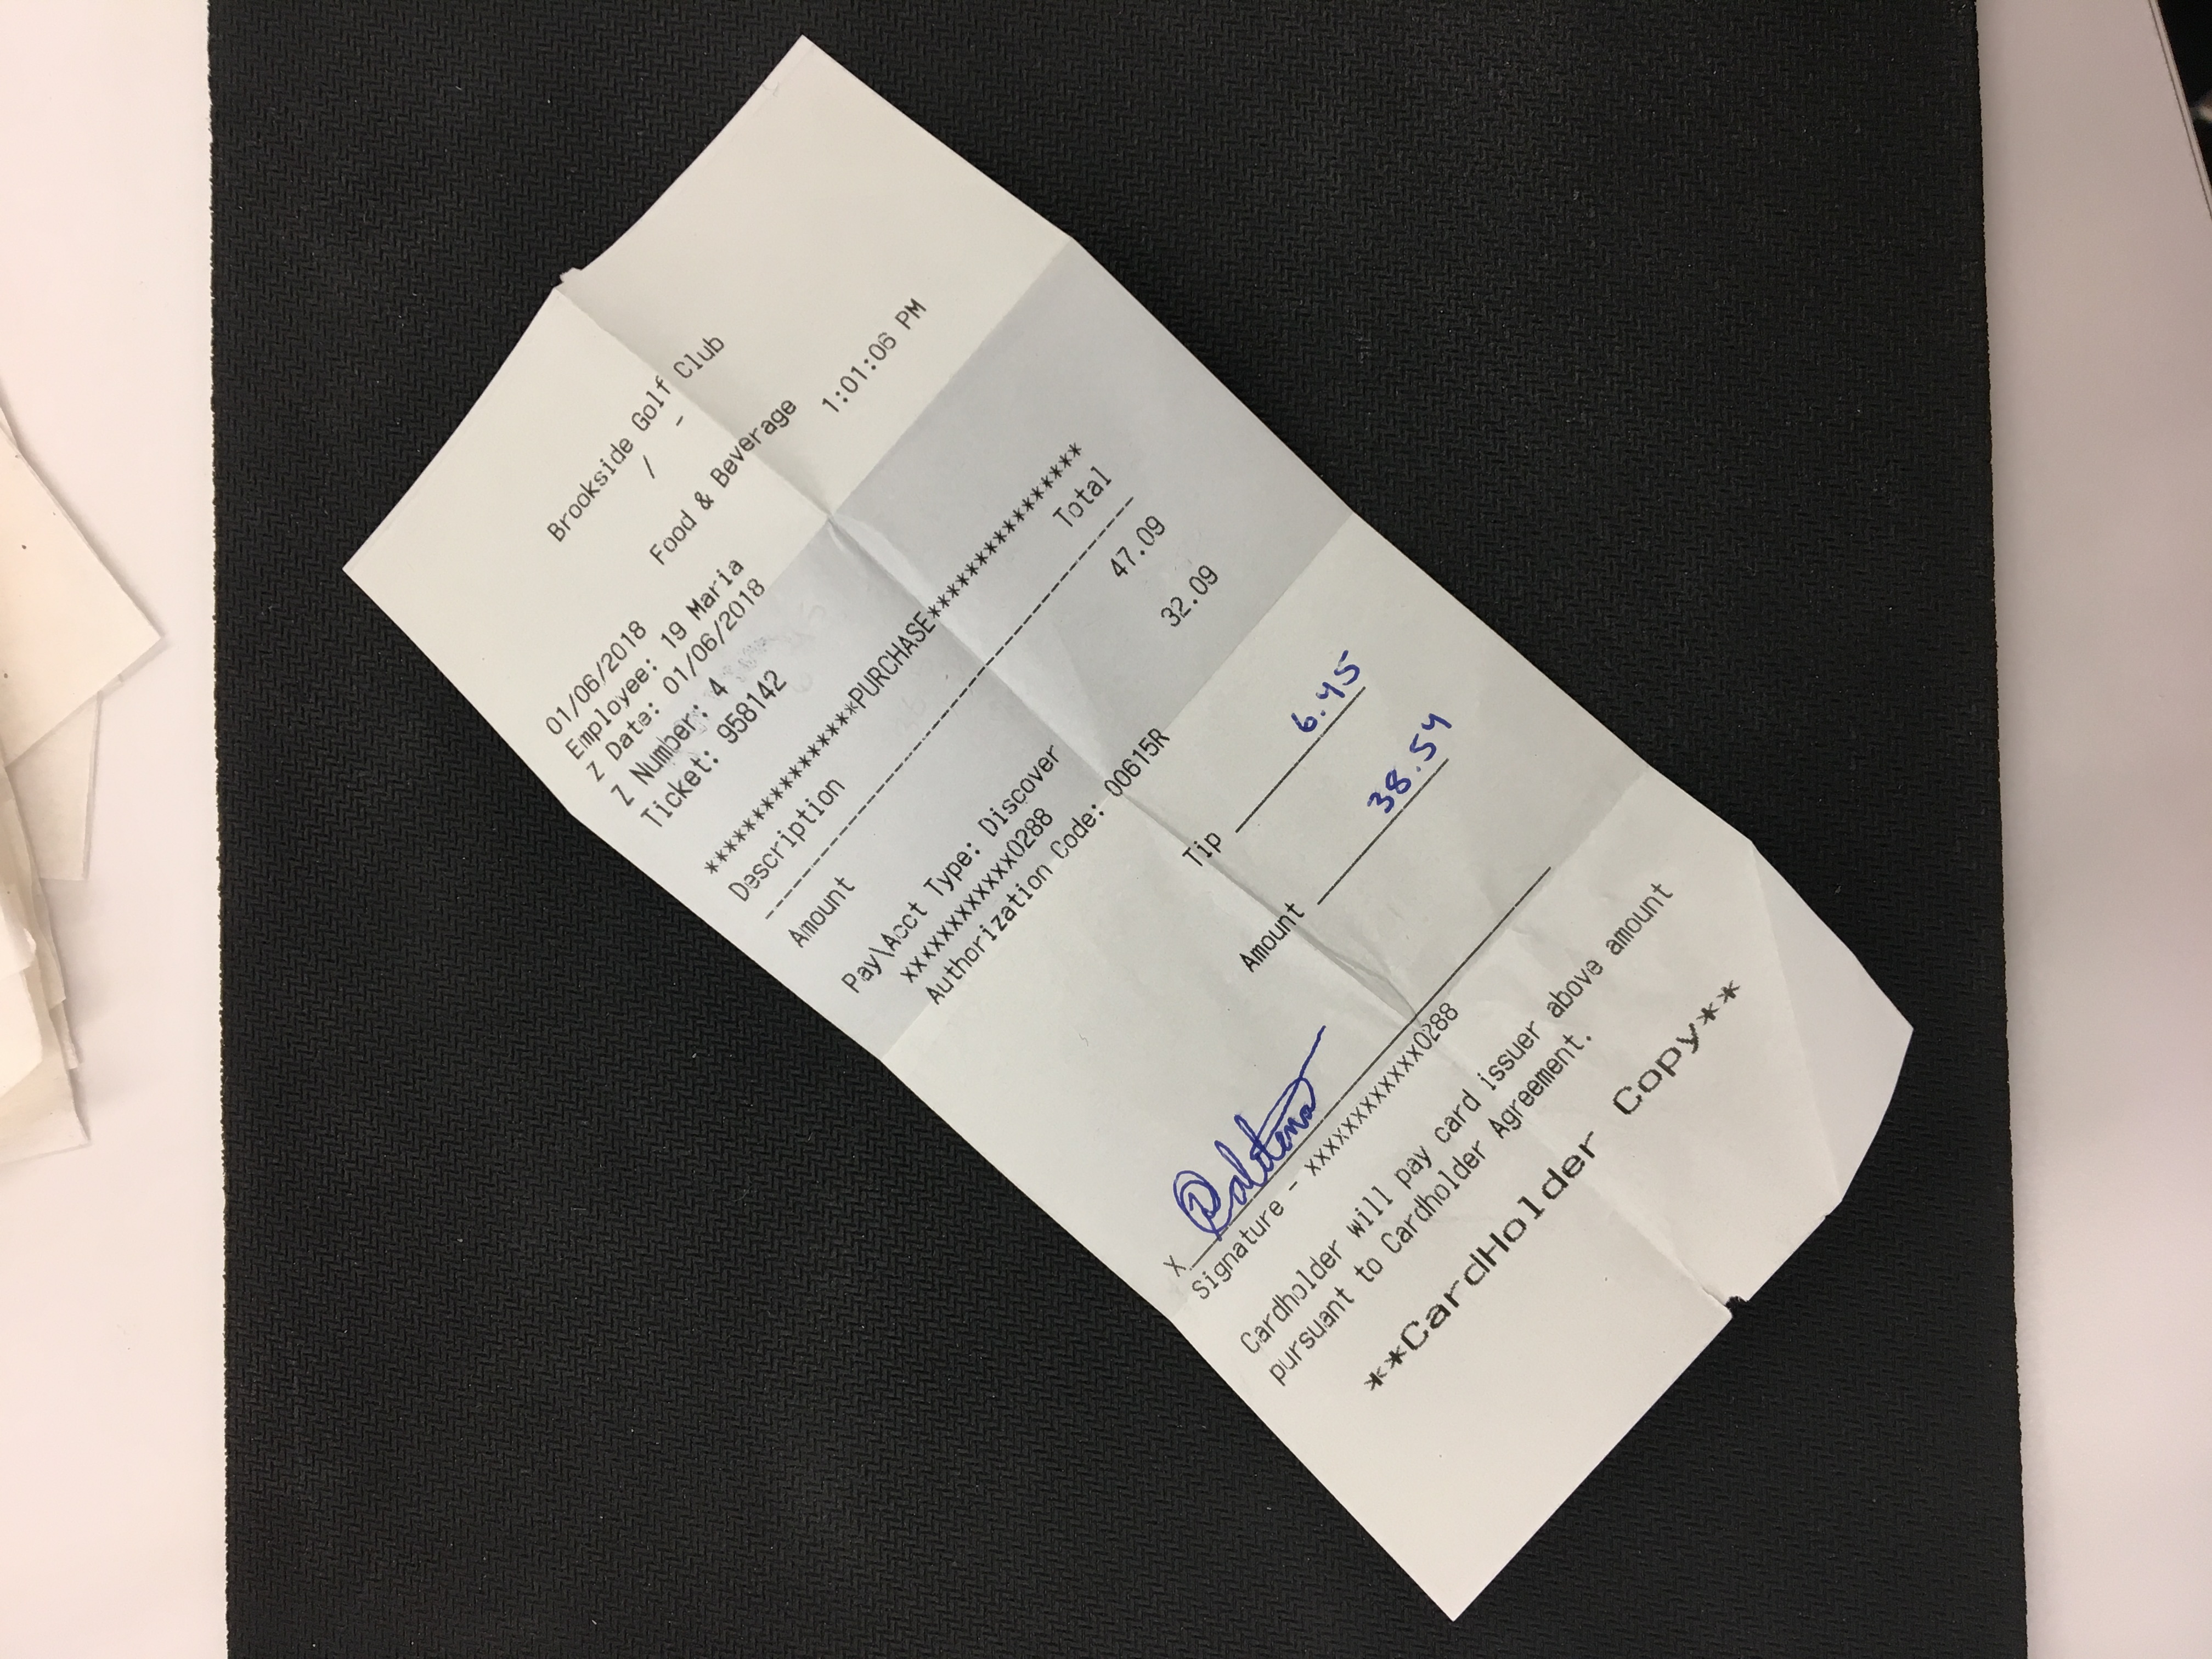 Brookside Golf Club
/ -
Food & Beverage
01/06/2018 1:01:06 PM
Employee: 19 Maria
Z Date: 01/06/2018
Z Number: 4
Ticket: 958142
*****************PURCHASE*****************
Description Total
------------------------------------------
Amount 47.09
Pay\Acct Type: Discover 32.09
xxxxxxxxxxxx0288
Authorization Code: 00615R
Tip 6.45
Amount 38.54
X
Signature - xxxxxxxxxxxx0288
Cardholder will pay card issuer above amount
pursuant to Cardholder Agreement.
**CardHolder Copy**